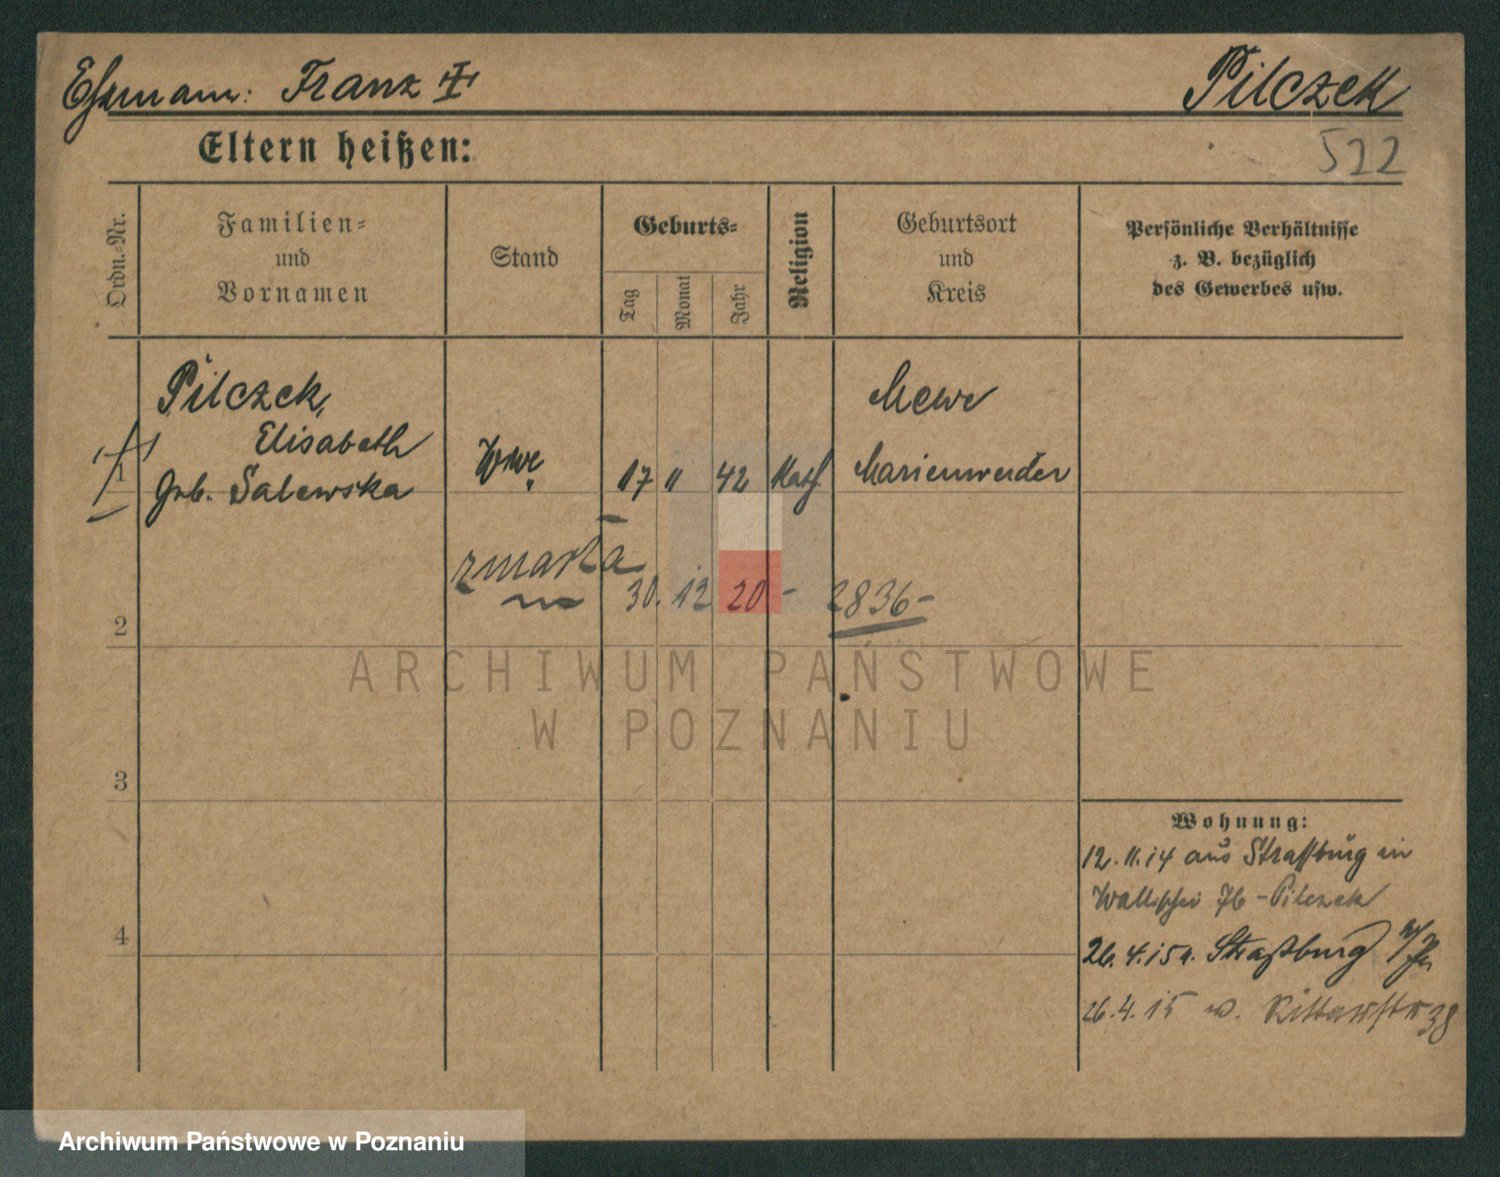 Ehemann: Franz †
Pilczek
522
Eltern heißen:
Ordn.-Nr.
Familien-
und
Vornamen
Stand
Geburts-
Tag
Monat
Jahr
Religion
Geburtsort
und
Kreis
Persönliche Verhältnisse
z. B. bezüglich
des Gewerbes usw.
Pilczek,
Elisabeth
geb. Salewska
1
Wwe.
17 11 42 Kath
Mewe
Marienwerder
zmarła
30. 12 20 - 2836-
2
ARCHIWUM PAŃSTWOWE
W POZNANIU
3
4
Wohnung:
12.11.14 aus Strassburg in
Wallischei 76 - Pilczek
26.4.15 n. Straßburg
26.4.15 w. Ritterstr 38
Archiwum Państwowe w Poznaniu